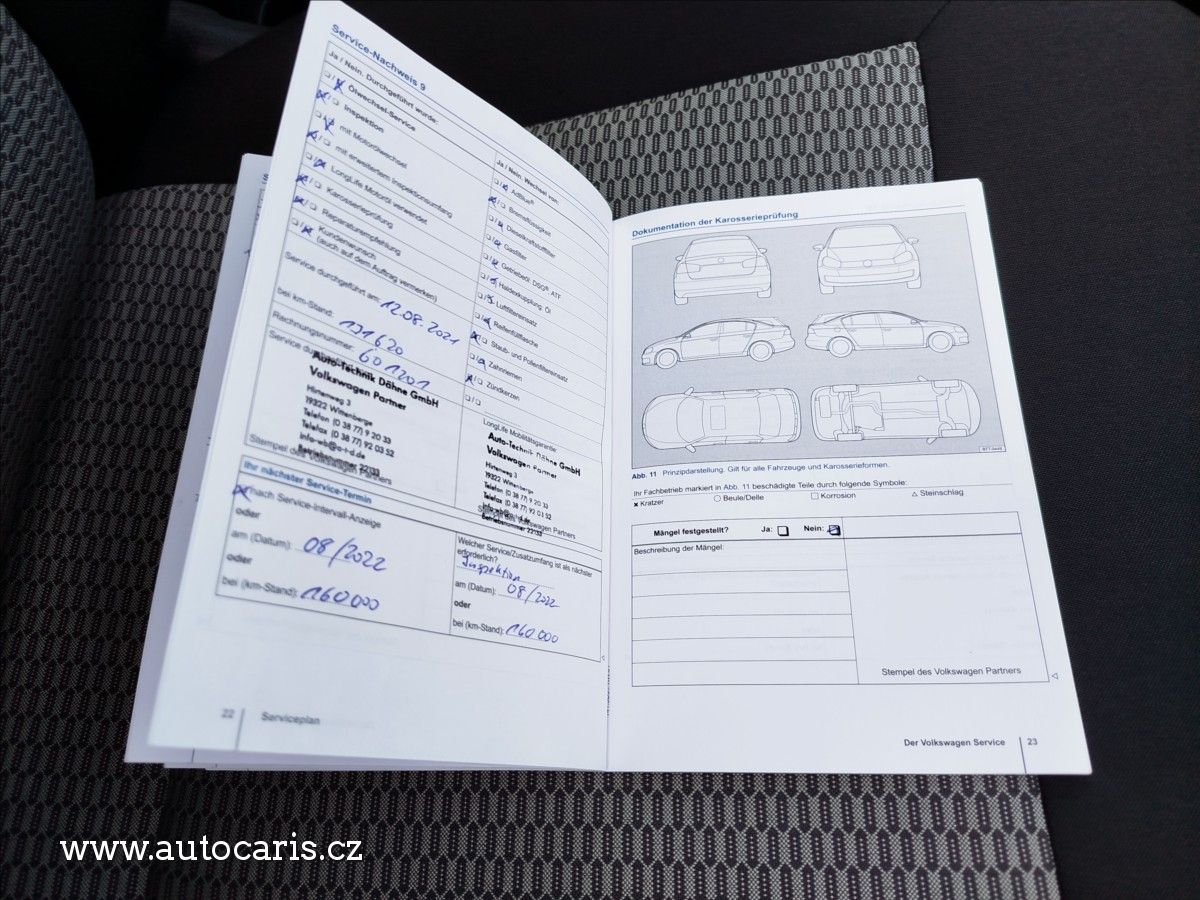 Service-Nachweis 9
Ja / Nein. Durchgeführt wurde:
Ölwechsel-Service
Inspektion
mit Motorölwechsel
mit erweitertem Inspektionsumfang
LongLife Motoröl verwendet
Karosserieprüfung
Reparaturempfehlung
Kundenwunsch
(auch auf dem Auftrag vermerken)
Service durchgeführt am: 12.08.2021
bei km-Stand: 131620
Rechnungsnummer: 601201
Service du
Auto-Technik Dähne GmbH
Volkswagen Partner
Hirtenweg 3
19322 Wittenberge
Telefon (0 38 77) 9 20 33
Telefax (0 38 77) 92 03 52
info-wb@a-t-d.de
Betriebsnummer 22133
Stempel des Volkswagen Partners
Ja / Nein. Wechsel von:
AdBlue®
Bremsflüssigkeit
Dieselkraftstofffilter
Gasfilter
Getriebeöl: DSG®, ATF
Haldexkupplung: Öl
Luftfiltereinsatz
Reifenfüllflasche
Staub- und Pollenfiltereinsatz
Zahnriemen
Zündkerzen
LongLife Mobilitätsgarantie:
Auto-Technik Dähne GmbH
Volkswagen Partner
Hirtenweg 3
19322 Wittenberge
Telefon (0 38 77) 9 20 33
Telefax (0 38 77) 92 03 52
info-wb@a-t-d.de
Betriebsnummer 22133
Stempel des Volkswagen Partners
Ihr nächster Service-Termin
nach Service-Intervall-Anzeige
oder
am (Datum): 08/2022
oder
bei (km-Stand): 160000
Welcher Service/Zusatzumfang ist als nächster
erforderlich?
Inspektion
am (Datum): 08/2022
oder
bei (km-Stand): 160 000
22 Serviceplan
Dokumentation der Karosserieprüfung
Abb. 11 Prinzipdarstellung. Gilt für alle Fahrzeuge und Karosserieformen.
Ihr Fachbetrieb markiert in Abb. 11 beschädigte Teile durch folgende Symbole:
× Kratzer ○ Beule/Delle □ Korrosion △ Steinschlag
Mängel festgestellt? Ja: Nein:
Beschreibung der Mängel:
Stempel des Volkswagen Partners
Der Volkswagen Service 23
www.autocaris.cz